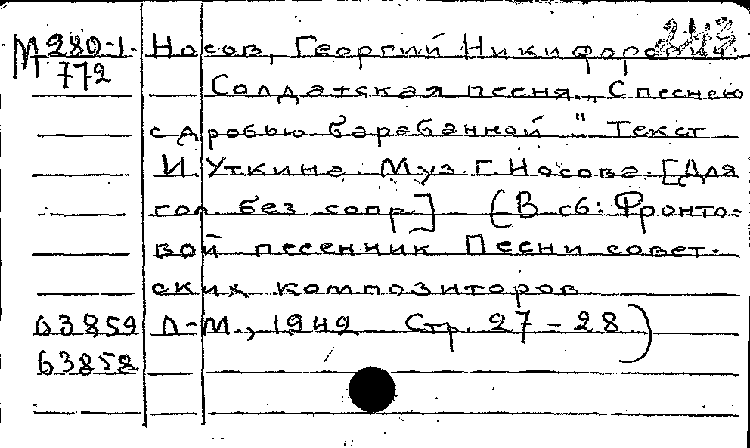 М 280-1. Носов, Георгий Никифорович
772 Солдатская песня. „С песнею
с дробью барабанной" Текст
И. Уткина. Муз. Г. Носова. [Для
гол. без сопр.] (В сб: Фронто-
вой песенник Песни совет-
ских композиторов
63859 Л-М., 1942 Стр. 27-28)
63858